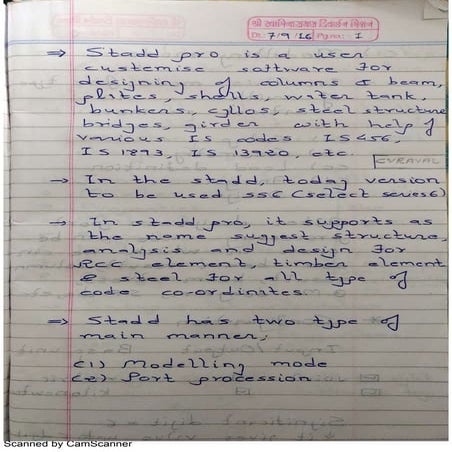 श्री स्वामिनारायण डिवाईन मिशन
Dt. 7/9/16 Pg no: 1
⇒ Stadd pro is a user
customise software for
designing of columns & beam,
plates, shells, water tank,
bunkers, cyllos, steel structure
bridges, girder with help of
various IS codes IS456,
IS 1893, IS 13920, etc.
⇒ In the stadd, today version
to be used SS6 (select series6)
⇒ In stadd pro, it supports as
the name suggest structure,
analysis and design for
RCC element, timber element
& steel for all type of
code co-ordinites
⇒ Stadd has two type of
main manner,
(1) Modelling mode
(2) Port procession
Scanned by CamScanner